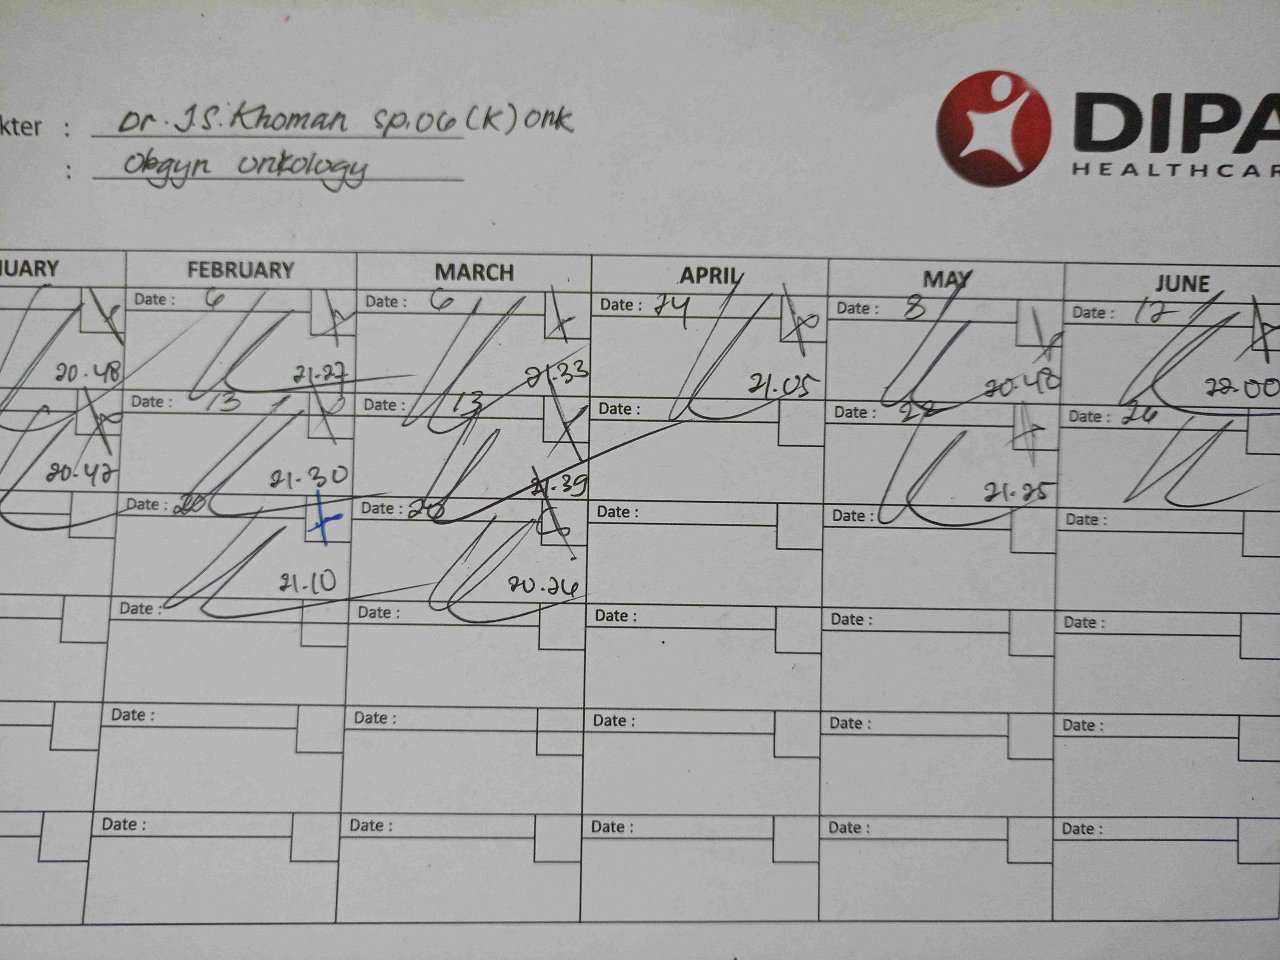 kter : Dr. J.S. Khoman sp.OG (K) Onk
: Obgyn onkology
DIPA
HEALTHCAR
UARY FEBRUARY MARCH APRIL MAY JUNE
Date : 6 Date : 6 Date : 24 Date : 8 Date : 12
20.48 21.27 21.33 21.05 20.48 22.00
Date : 13 Date : 13 Date : Date : 22 Date : 26
20.42 21.30 21.39 21.25
Date : 20 Date : 20 Date : Date : Date :
21.10 20.26
Date : Date : Date : Date : Date :
Date : Date : Date : Date : Date :
Date : Date : Date : Date : Date :